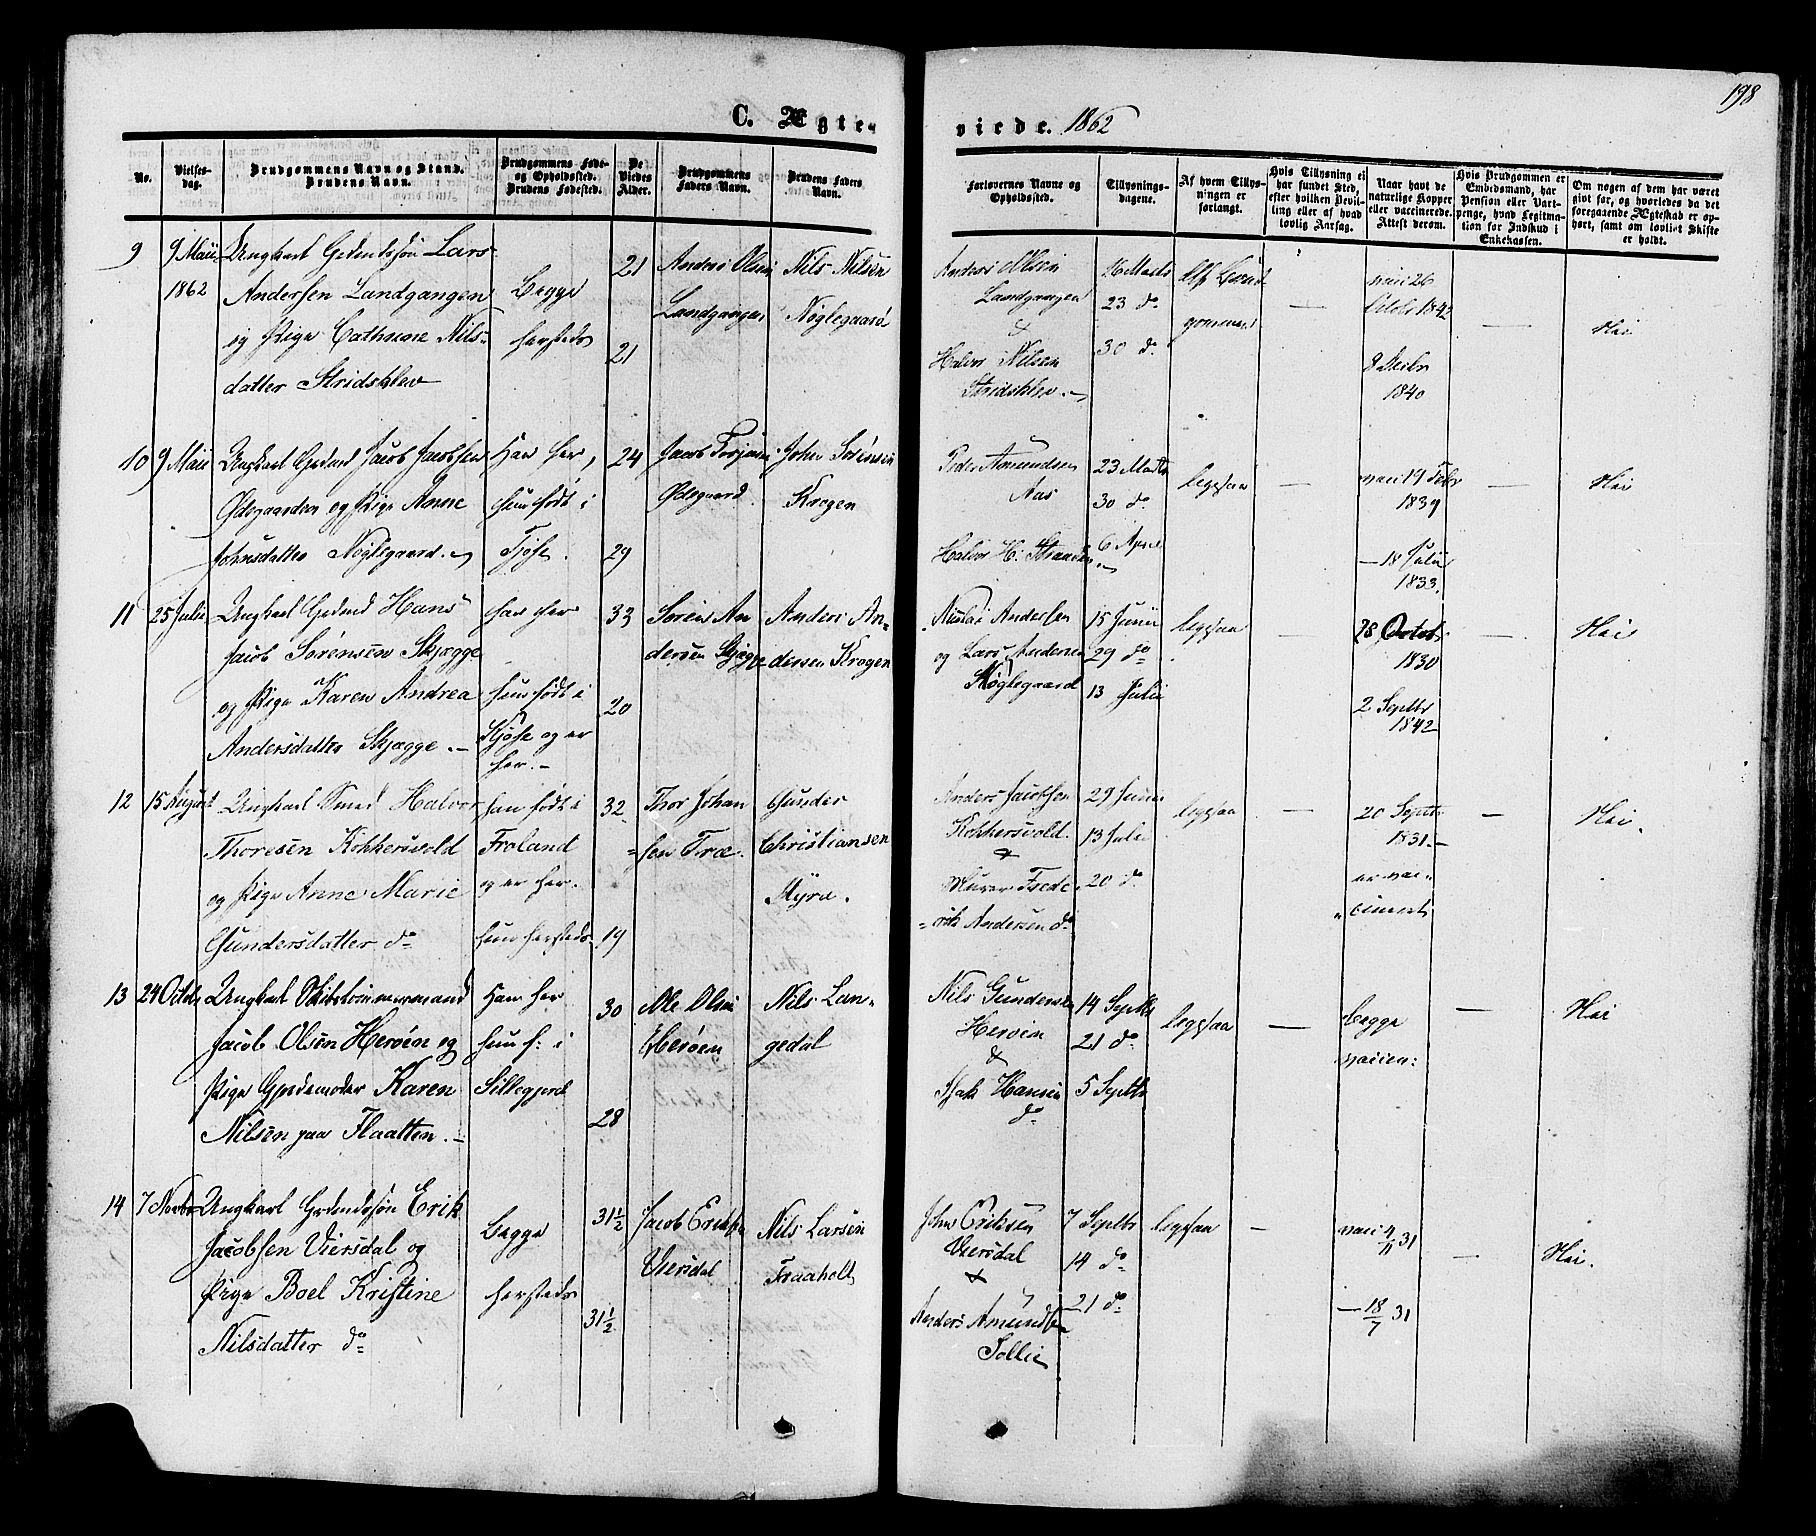 198
C. Ægte-
viede. 1862
No.
Vielses-
dag.
Brudgommens Navn og Stand.
Brudens Navn.
Brudgommens Føde-
og Opholdssted.
Brudens Fødested.
De
Viedes
Alder.
Brudgommens
Faders Navn.
Brudens Faders
Navn.
Forlovernes Navne og
Opholdssted.
Tillysnings-
dagene.
Af hvem Tillys-
ningen er
forlangt.
Hvis Tillysning ei
har fundet Sted,
efter hvilken Bevil-
ling eller af hvad
lovlig Aarsag.
Naar havt de
naturlige Kopper
eller vaccinerede.
Attest derom.
Hvis Brudgommen er
Embedsmand, har
Pension eller Vart-
penge, hvad Legitima-
tion for Indskud i
Enkekassen.
Om nogen af dem har været
gift før, og hvorledes da det
foregaaende Ægteskab er op-
hørt, samt om lovligt Skifte
er holdt.
9
9 Maii
1862
Ungkarl Lars
Andersen Landgangen
og Pige Cathrine Nils-
datter Stridsklev
Begge
hersteds
21
21
Anders Olsen
Landgangen
Nils Nilsen
Nøglegaard
Anders Olsen
Landgangen
&
Halvor Nilsen
Stridsklev
16 Marts
23 do
30 do
Brud-
gommen
—
vacc 26
Octbr 1842
8 Decbr
1840
—
Nei
10
9 Maii
Ungkarl Jacob Jacobsen
Ødegaarden og Pige Anne
Johnsdatter Nøglegaard
Han her,
hun født i
Tjøse.
24
29
Jacob
Ødegaard.
John Sørensen
Krogen
Peder Amundsen
Aas
Halvor H. Stranden
23 Marts
30 do
6 April
ligesaa
—
vacc 19 Febr
1839
— 18 Julii
1833.
—
Nei
11
25 Julii
Ungkarl Hans
Jacob Sørensen Skjægge
og Pige Karen Andrea
Andersdatter Skjægge.
han her
hun født i
Kjøse og er
her.
33
20
Søren An
dersen Skjægge
Anders An-
dersen Krogen
Nicolai Andersen
og Lars Andersen
Nøglegaard
15 Junii
29 do
13 Julii
ligesaa
—
28 Octob.
1830
2 Septbr
1842
—
Nei
12
15 August
Ungkarl Smed Halvor
Thoresen Kokkersvold
og Pige Anne Marie
Gundersdatter do
han født i
Froland
og er her.
hun hersteds
32
19
Thor Johan
sen Træ.
Gunder
Christiansen
Myra.
Anders Jacobsen
Kokkersvold
&
Murer Frede
rik Andersen do
29 Junii
13 Julii
20 do
ligesaa
—
20 Septbr
1831.
er vac-
cineret
—
Nei.
13
24 Octbr
Ungkarl Skibstømmermand
Jacob Olsen Herøen og
Pige Karen
Nilsen paa Flaatten.
Han her
hun f: i
Sillegjord
30
28
Ole Olsen
Herøen
Nils Lan-
gedal
Nils Gundersen
Herøen
&
Isak Hansen
do
14 Septbr
21 do
5 Septbr
ligesaa
—
begge
vaccin:
—
Nei
14
7 Novbr
Ungkarl Erik
Jacobsen Viersdal og
Pige Boel Kristine
Nilsdatter do
begge
hersteds
31½
31½
Jacob Eriksen
Viersdal
Nils Larsen
Traaholt
John Eriksen
Viersdal
&
Anders Amundsen
Sollie
7 Septbr
14 do
21 do
ligesaa
—
31
— 18/7 31
—
Nei.